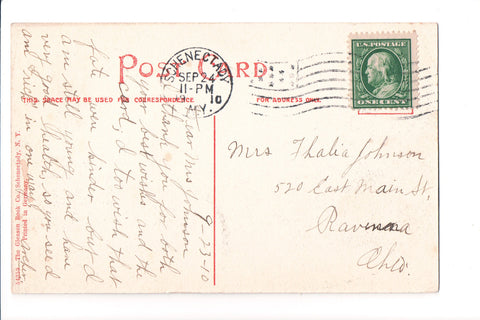 POST CARD
SCHENECTADY
SEP 24
11-PM
10
N.Y.
U.S. POSTAGE
ONE CENT
THIS SPACE MAY BE USED FOR CORRESPONDENCE.
FOR ADDRESS ONLY.
9-23-10
Dear Mrs Johnson
I thank you for both
your best wishes and the
card, I too wish that
fate were kinder but I
am still young and have
very good health, so you see I
am rich in one way
Mrs Thalia Johnson
520 East Main St.
Ravenna
Ohio.
The Gleason Book Co., Schenectady, N. Y.
Printed in Germany